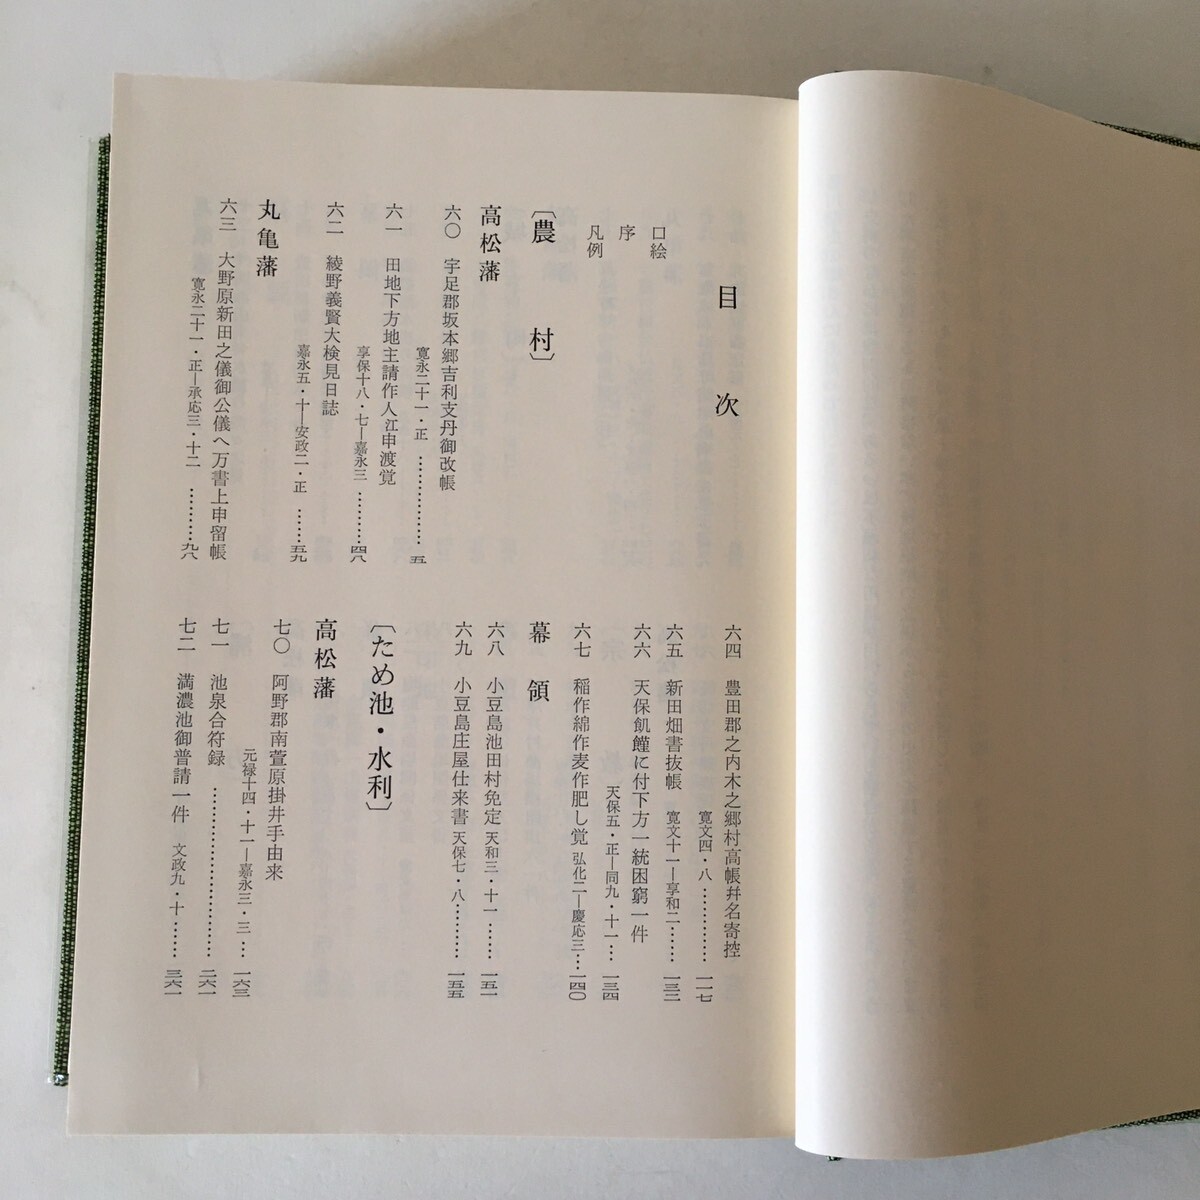 目次
口絵
序
凡例
〔農村〕
高松藩
六〇 宇足郡坂本郷吉利支丹御改帳
寛永二十一・正 ……………… 五
六一 田地下方地主請作人江申渡覚
享保十八・七―嘉永三 ……… 四八
六二 綾野義賢大検見日誌
嘉永五・十―安政二・正 …… 五九
丸亀藩
六三 大野原新田之儀御公儀へ万書上申留帳
寛永二十一・正―承応三・十二 ……… 九八
六四 豊田郡之内木之郷村高帳幷名寄控
寛文四・八 ………… 一一七
六五 新田畑書抜帳 寛文十一―享和二 …… 一三二
六六 天保飢饉に付下方一統困窮一件
天保五・正―同九・十一 … 一三四
六七 稲作綿作麦作肥し覚 弘化二―慶応三 … 一四〇
幕領
六八 小豆島池田村免定 天和三・十一 …… 一五一
六九 小豆島庄屋仕来書 天保七・八 ……… 一五五
〔ため池・水利〕
高松藩
七〇 阿野郡南萱原掛井手由来
元禄十四・十一―嘉永三・三 … 一六三
七一 池泉合符録 ……………………… 二六一
七二 満濃池御普請一件 文政九・十 …… 三六一